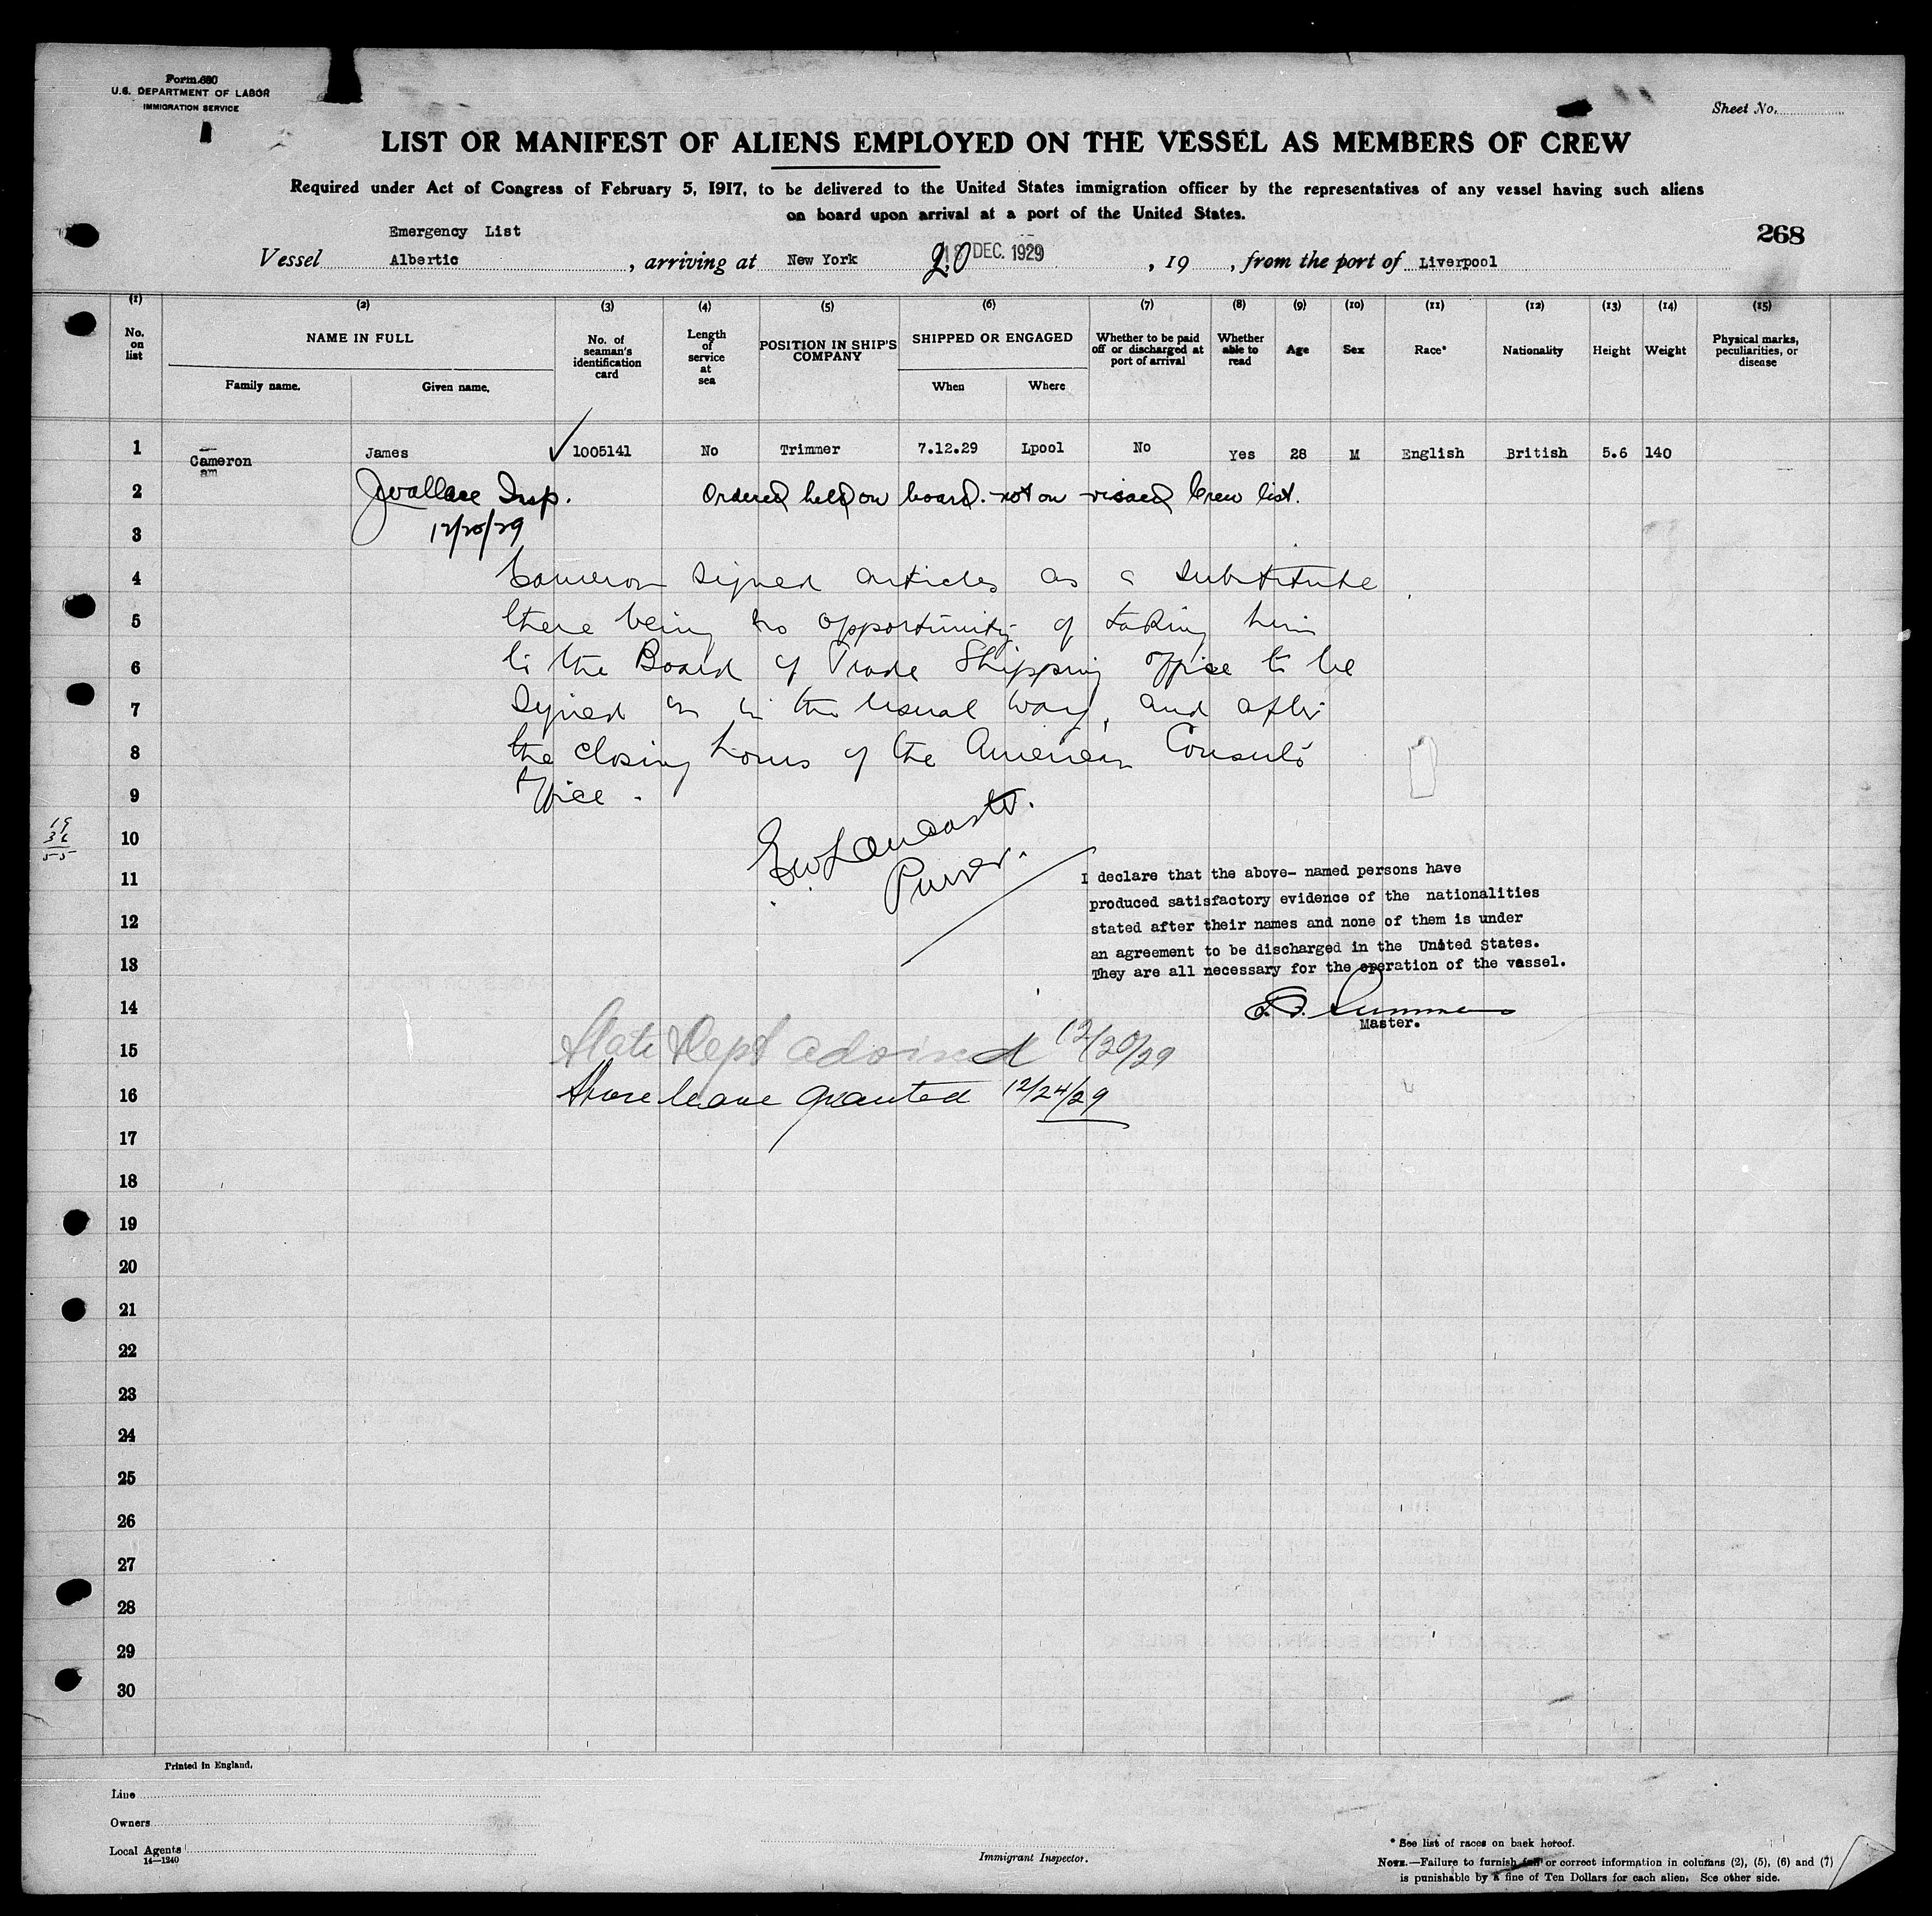 Form 680
U.S. DEPARTMENT OF LABOR
IMMIGRATION SERVICE
Sheet No.
LIST OR MANIFEST OF ALIENS EMPLOYED ON THE VESSEL AS MEMBERS OF CREW
Required under Act of Congress of February 5, 1917, to be delivered to the United States immigration officer by the representatives of any vessel having such aliens
on board upon arrival at a port of the United States.
268
Emergency List
Vessel Albertic, arriving at New York 20 DEC. 1929, 19, from the port of Liverpool
(1) (2) (3) (4) (5) (6) (7) (8) (9) (10) (11) (12) (13) (14) (15)
No. on list
NAME IN FULL
Family name. Given name.
No. of seaman's identification card
Length of service at sea
POSITION IN SHIP'S COMPANY
SHIPPED OR ENGAGED
When Where
Whether to be paid off or discharged at port of arrival
Whether able to read
Age
Sex
Race*
Nationality
Height
Weight
Physical marks, peculiarities, or disease
1 Cameron James 1005141 No Trimmer 7.12.29 Lpool No Yes 28 M English British 5.6 140
am
2 JWallace Insp. Ordered held on board. not on visaed Crew list.
3 12/20/29
4 Cameron signed articles as a substitute
5 there being no opportunity of taking him
6 to the Board of Trade Shipping office to be
7 signed on in the usual way, and after
8 the closing hours of the American Consul's
9 office.
19
36
55
10 EW Lancaster.
11 Purser.
I declare that the above- named persons have
produced satisfactory evidence of the nationalities
12 stated after their names and none of them is under
an agreement to be discharged in the United States.
13 They are all necessary for the operation of the vessel.
14
Master.
15 State Dept advised 12/20/29
16 Shore leave granted 12/24/29
17
18
19
20
21
22
23
24
25
26
27
28
29
30
Printed in England.
Line
Owners
Local Agents
14—1240
Immigrant Inspector.
* See list of races on back hereof.
NOTE.—Failure to furnish full or correct information in columns (2), (5), (6) and (7)
is punishable by a fine of Ten Dollars for each alien. See other side.